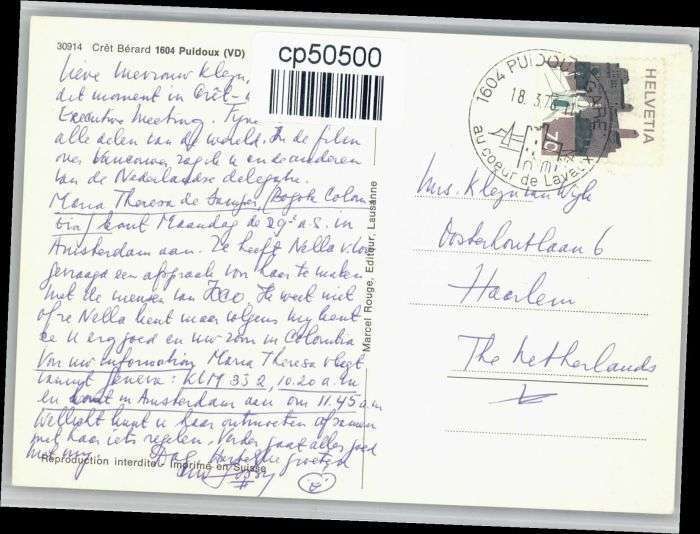 30914 Crêt Bérard 1604 Puidoux (VD)
cp50500
Lieve Mevrouw Kleyn,
dit moment in Crêt-
Executive Meeting.
alle delen van de wereld. In de film
over Vancouver zag ik u en de anderen
van de Nederlandse delegatie.
Maria Theresa de (Bogota Colom
bia) komt Maandag de 29e a.s. in
Amsterdam aan. Ze heeft Nella v.
gevraagd een afspraak voor haar te maken
met de mensen van ICCO. Ik weet niet
of je Nella kent maar volgens mij kent
ze u erg goed en uw zoon in Colombia
Voor uw information Maria Theresa vliegt
vanuit Geneva: KLM 332, 10.20 a.m
en komt in Amsterdam aan om 11.45 a.m
Wellicht kunt u haar ontmoeten of samen
met haar iets regelen. Verder gaat alles goed
met mij. Dag Hartelijke groeten
Reproduction interdite - Imprimé en Suisse
Marcel Rouge, Editeur, Lausanne
1604 PUIDOUX-GARE
18.3.76
au coeur de Lavaux
HELVETIA
70
Mrs. Kleyn van Wijk
Oosterhoutlaan 6
Haarlem
The Netherlands